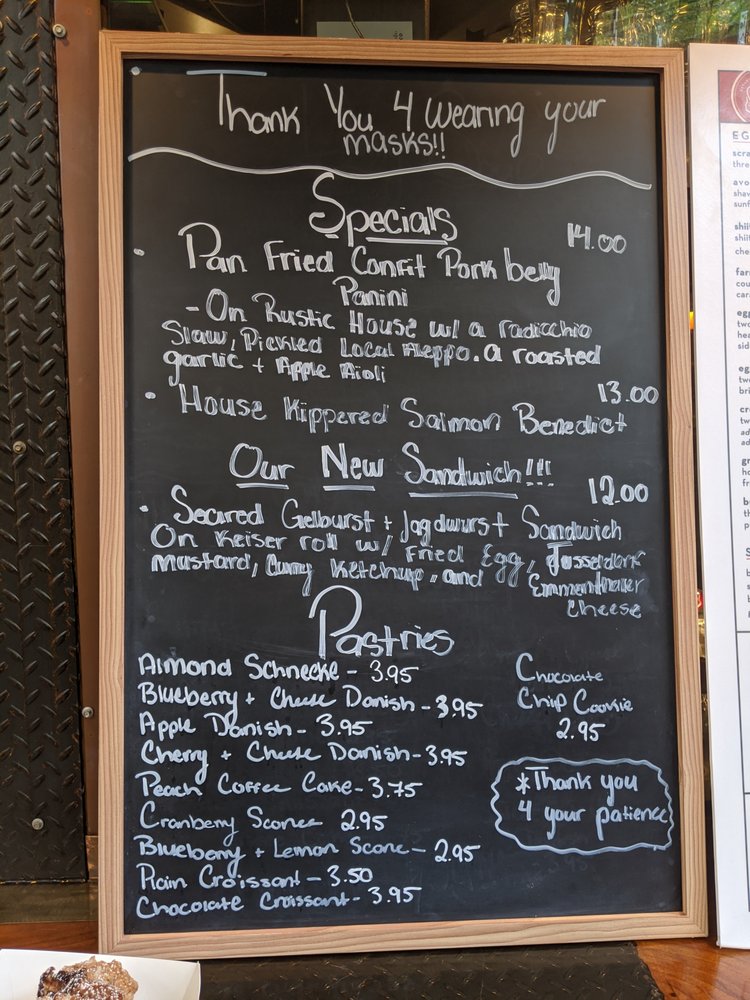 Thank You 4 wearing your
masks!!
Specials
14.00
Pan Fried Confit Pork belly
Panini
-On Rustic House w/ a radicchio
Slaw, Pickled Local Aleppo. a roasted
garlic + Apple Aioli
13.00
House Kippered Salmon Benedict
Our New Sandwich!!!
12.00
Seared Gelburst + Jagdwurst Sandwich
On Keiser roll w/ Fried Egg,
mustard, Curry Ketchup, and Emmenthauer
cheese
Pastries
Almond Schnecke - 3.95
Blueberry + Cheese Danish - 3.95
Apple Danish - 3.95
Cherry + Cheese Danish - 3.95
Peach Coffee Cake - 3.75
Cranberry Scone 2.95
Blueberry + Lemon Scone - 2.95
Plain Croissant - 3.50
Chocolate Croissant - 3.95
Chocolate
Chip Cookie
2.95
*Thank you
4 your patience